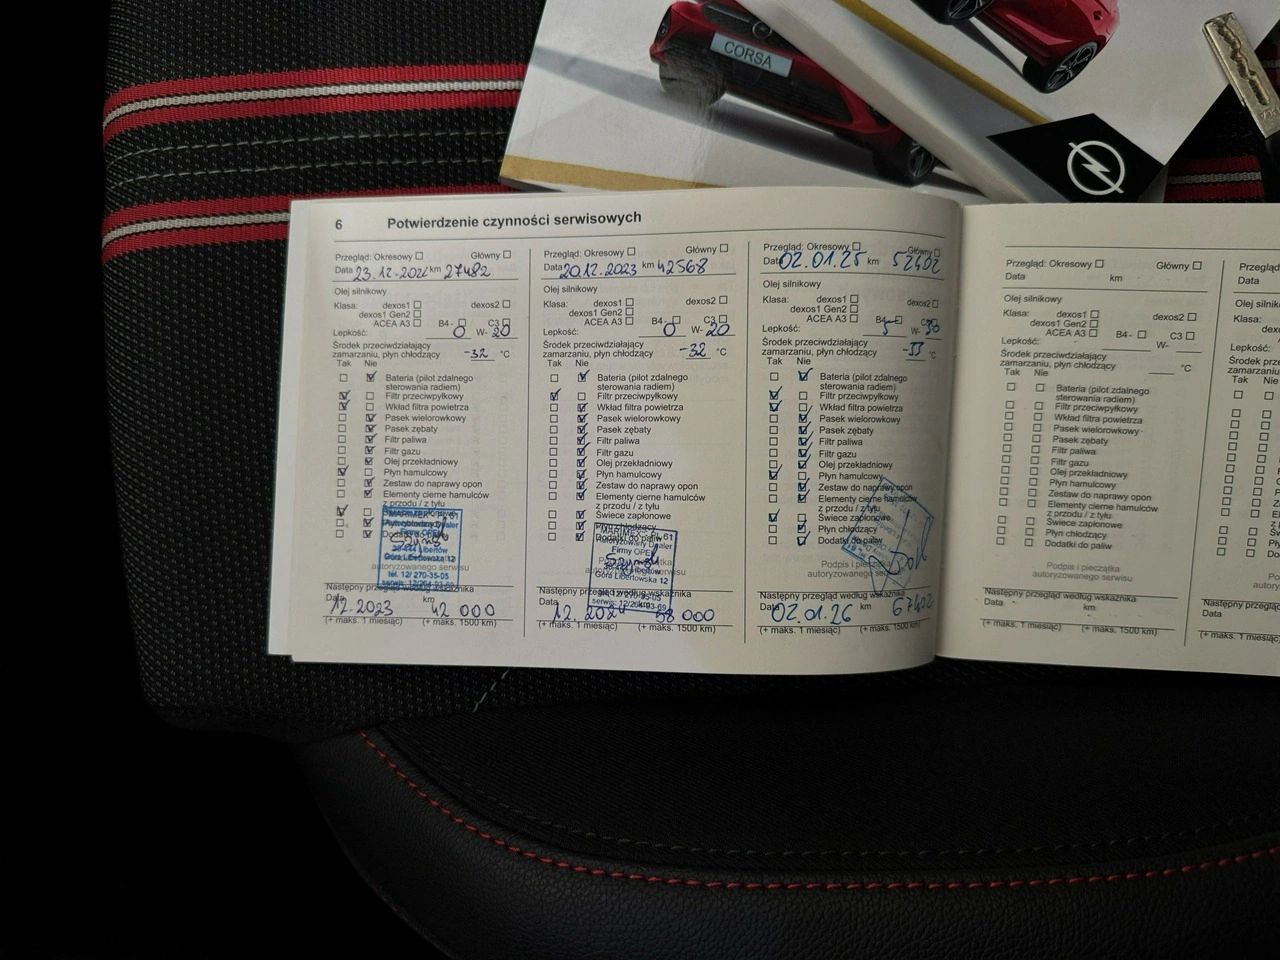 CORSA
6 Potwierdzenie czynności serwisowych
Przegląd: Okresowy Główny
Data 23.12.2022 km 27482
Olej silnikowy
Klasa: dexos1 dexos2
dexos1 Gen2
ACEA A3 B4- C3
Lepkość: 0 W- 20
Środek przeciwdziałający
zamarzaniu, płyn chłodzący -32 °C
Tak Nie
Bateria (pilot zdalnego
sterowania radiem)
Filtr przeciwpyłkowy
Wkład filtra powietrza
Pasek wielorowkowy
Pasek zębaty
Filtr paliwa
Filtr gazu
Olej przekładniowy
Płyn hamulcowy
Zestaw do naprawy opon
Elementy cierne hamulców
z przodu / z tyłu
Góra Libertowska 12
tel. 12/ 270-35-05
Następny przegląd według wskaźnika
Data 12.2023 42 000
(+ maks. 1 miesiąc) (+ maks. 1500 km)
Przegląd: Okresowy Główny
Data 20.12.2023 km 42568
Olej silnikowy
Klasa: dexos1 dexos2
dexos1 Gen2
ACEA A3 B4- C3
Lepkość: 0 W- 20
Środek przeciwdziałający
zamarzaniu, płyn chłodzący -32 °C
Tak Nie
Bateria (pilot zdalnego
sterowania radiem)
Filtr przeciwpyłkowy
Wkład filtra powietrza
Pasek wielorowkowy
Pasek zębaty
Filtr paliwa
Filtr gazu
Olej przekładniowy
Płyn hamulcowy
Zestaw do naprawy opon
Elementy cierne hamulców
z przodu / z tyłu
Świece zapłonowe
Płyn chłodzący
Dodatki do paliw
Firmy OPEL
Góra Libertowska 12
Następny przegląd według wskaźnika
Data 58 000
(+ maks. 1 miesiąc) (+ maks. 1500 km)
Przegląd: Okresowy Główny
Data 02.01.25 km 52402
Olej silnikowy
Klasa: dexos1 dexos2
dexos1 Gen2
ACEA A3 B4- C3
Lepkość: 5 W- 30
Środek przeciwdziałający
zamarzaniu, płyn chłodzący °C
Tak Nie
Bateria (pilot zdalnego
sterowania radiem)
Filtr przeciwpyłkowy
Wkład filtra powietrza
Pasek wielorowkowy
Pasek zębaty
Filtr paliwa
Filtr gazu
Olej przekładniowy
Płyn hamulcowy
Zestaw do naprawy opon
Elementy cierne hamulców
z przodu / z tyłu
Świece zapłonowe
Płyn chłodzący
Dodatki do paliw
Podpis i pieczątka
autoryzowanego serwisu
Następny przegląd według wskaźnika
Data 02.01.26 km 67402
(+ maks. 1 miesiąc) (+ maks. 1500 km)
Przegląd: Okresowy Główny
Data km
Olej silnikowy
Klasa: dexos1 dexos2
dexos1 Gen2
ACEA A3 B4- C3
Lepkość: W-
Środek przeciwdziałający
zamarzaniu, płyn chłodzący °C
Tak Nie
Bateria (pilot zdalnego
sterowania radiem)
Filtr przeciwpyłkowy
Wkład filtra powietrza
Pasek wielorowkowy
Pasek zębaty
Filtr paliwa
Filtr gazu
Olej przekładniowy
Płyn hamulcowy
Zestaw do naprawy opon
Elementy cierne hamulców
z przodu / z tyłu
Świece zapłonowe
Płyn chłodzący
Dodatki do paliw
Podpis i pieczątka
autoryzowanego serwisu
Następny przegląd według wskaźnika
Data km
(+ maks. 1 miesiąc) (+ maks. 1500 km)
Data
Klasa:
Lepkość:
Tak Nie
Data